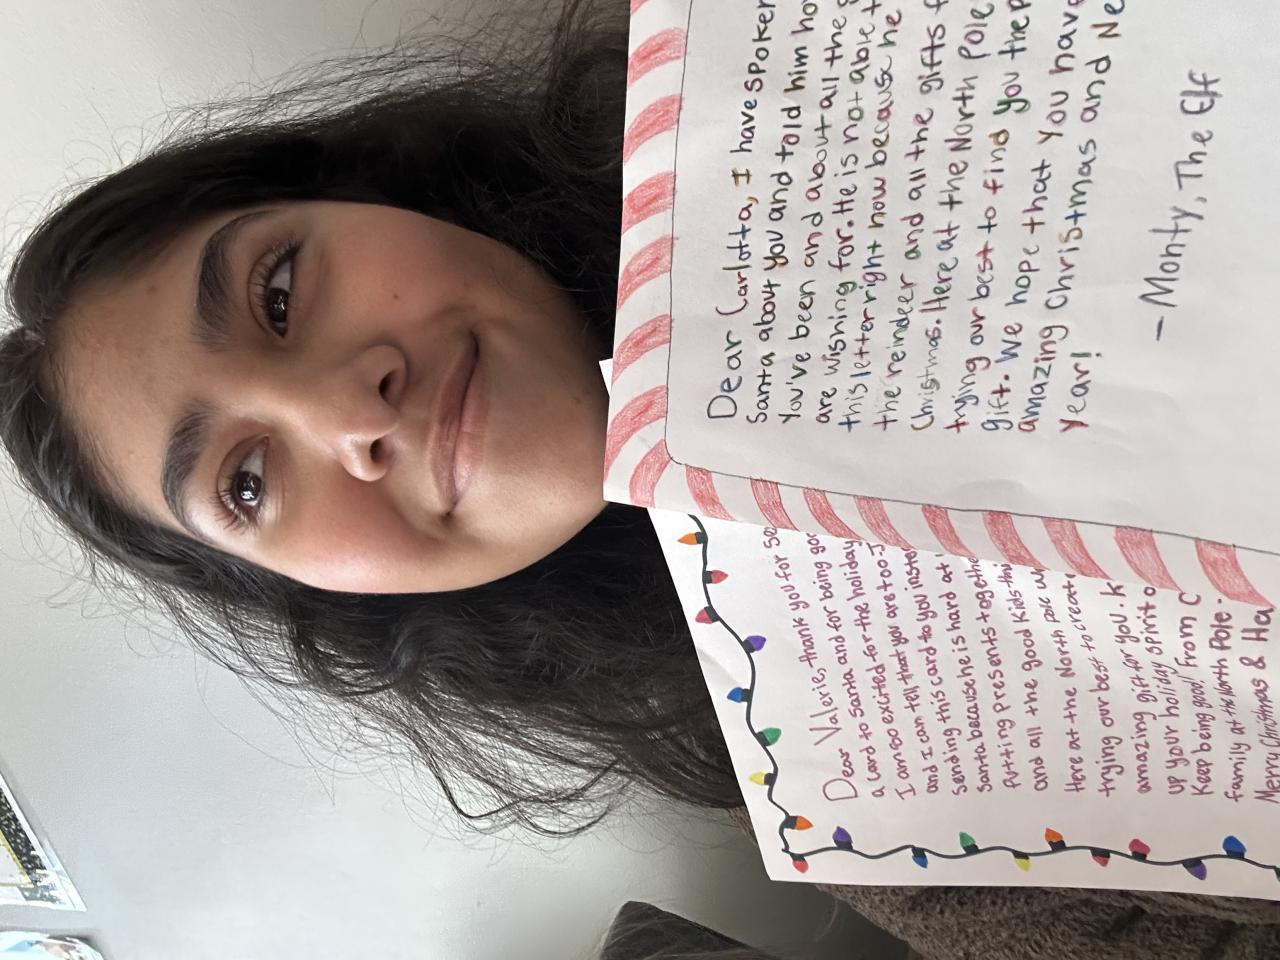 Dear Carlotta, I have spoken
Santa about you and told him
You've been and about all the
are wishing for. He is not able
this letter right now because he
the reinder and all the gifts
Christmas. Here at the North Pole
trying our best to find you the
gift. We hope that you have
amazing Christmas and
Year!
- Monty, The Elf
Dear Valerie, thank you for
a card to Santa and for being
I am so excited for the holiday
I can tell that you are too
and I can
sending this card to you
Santa because he is hard at
putting presents together
and all the good kids
Here at the North pole
trying our best to create
amazing gift for you.
up your holiday spirit
Keep being good! From
family at the North Pole.
Merry Christmas &